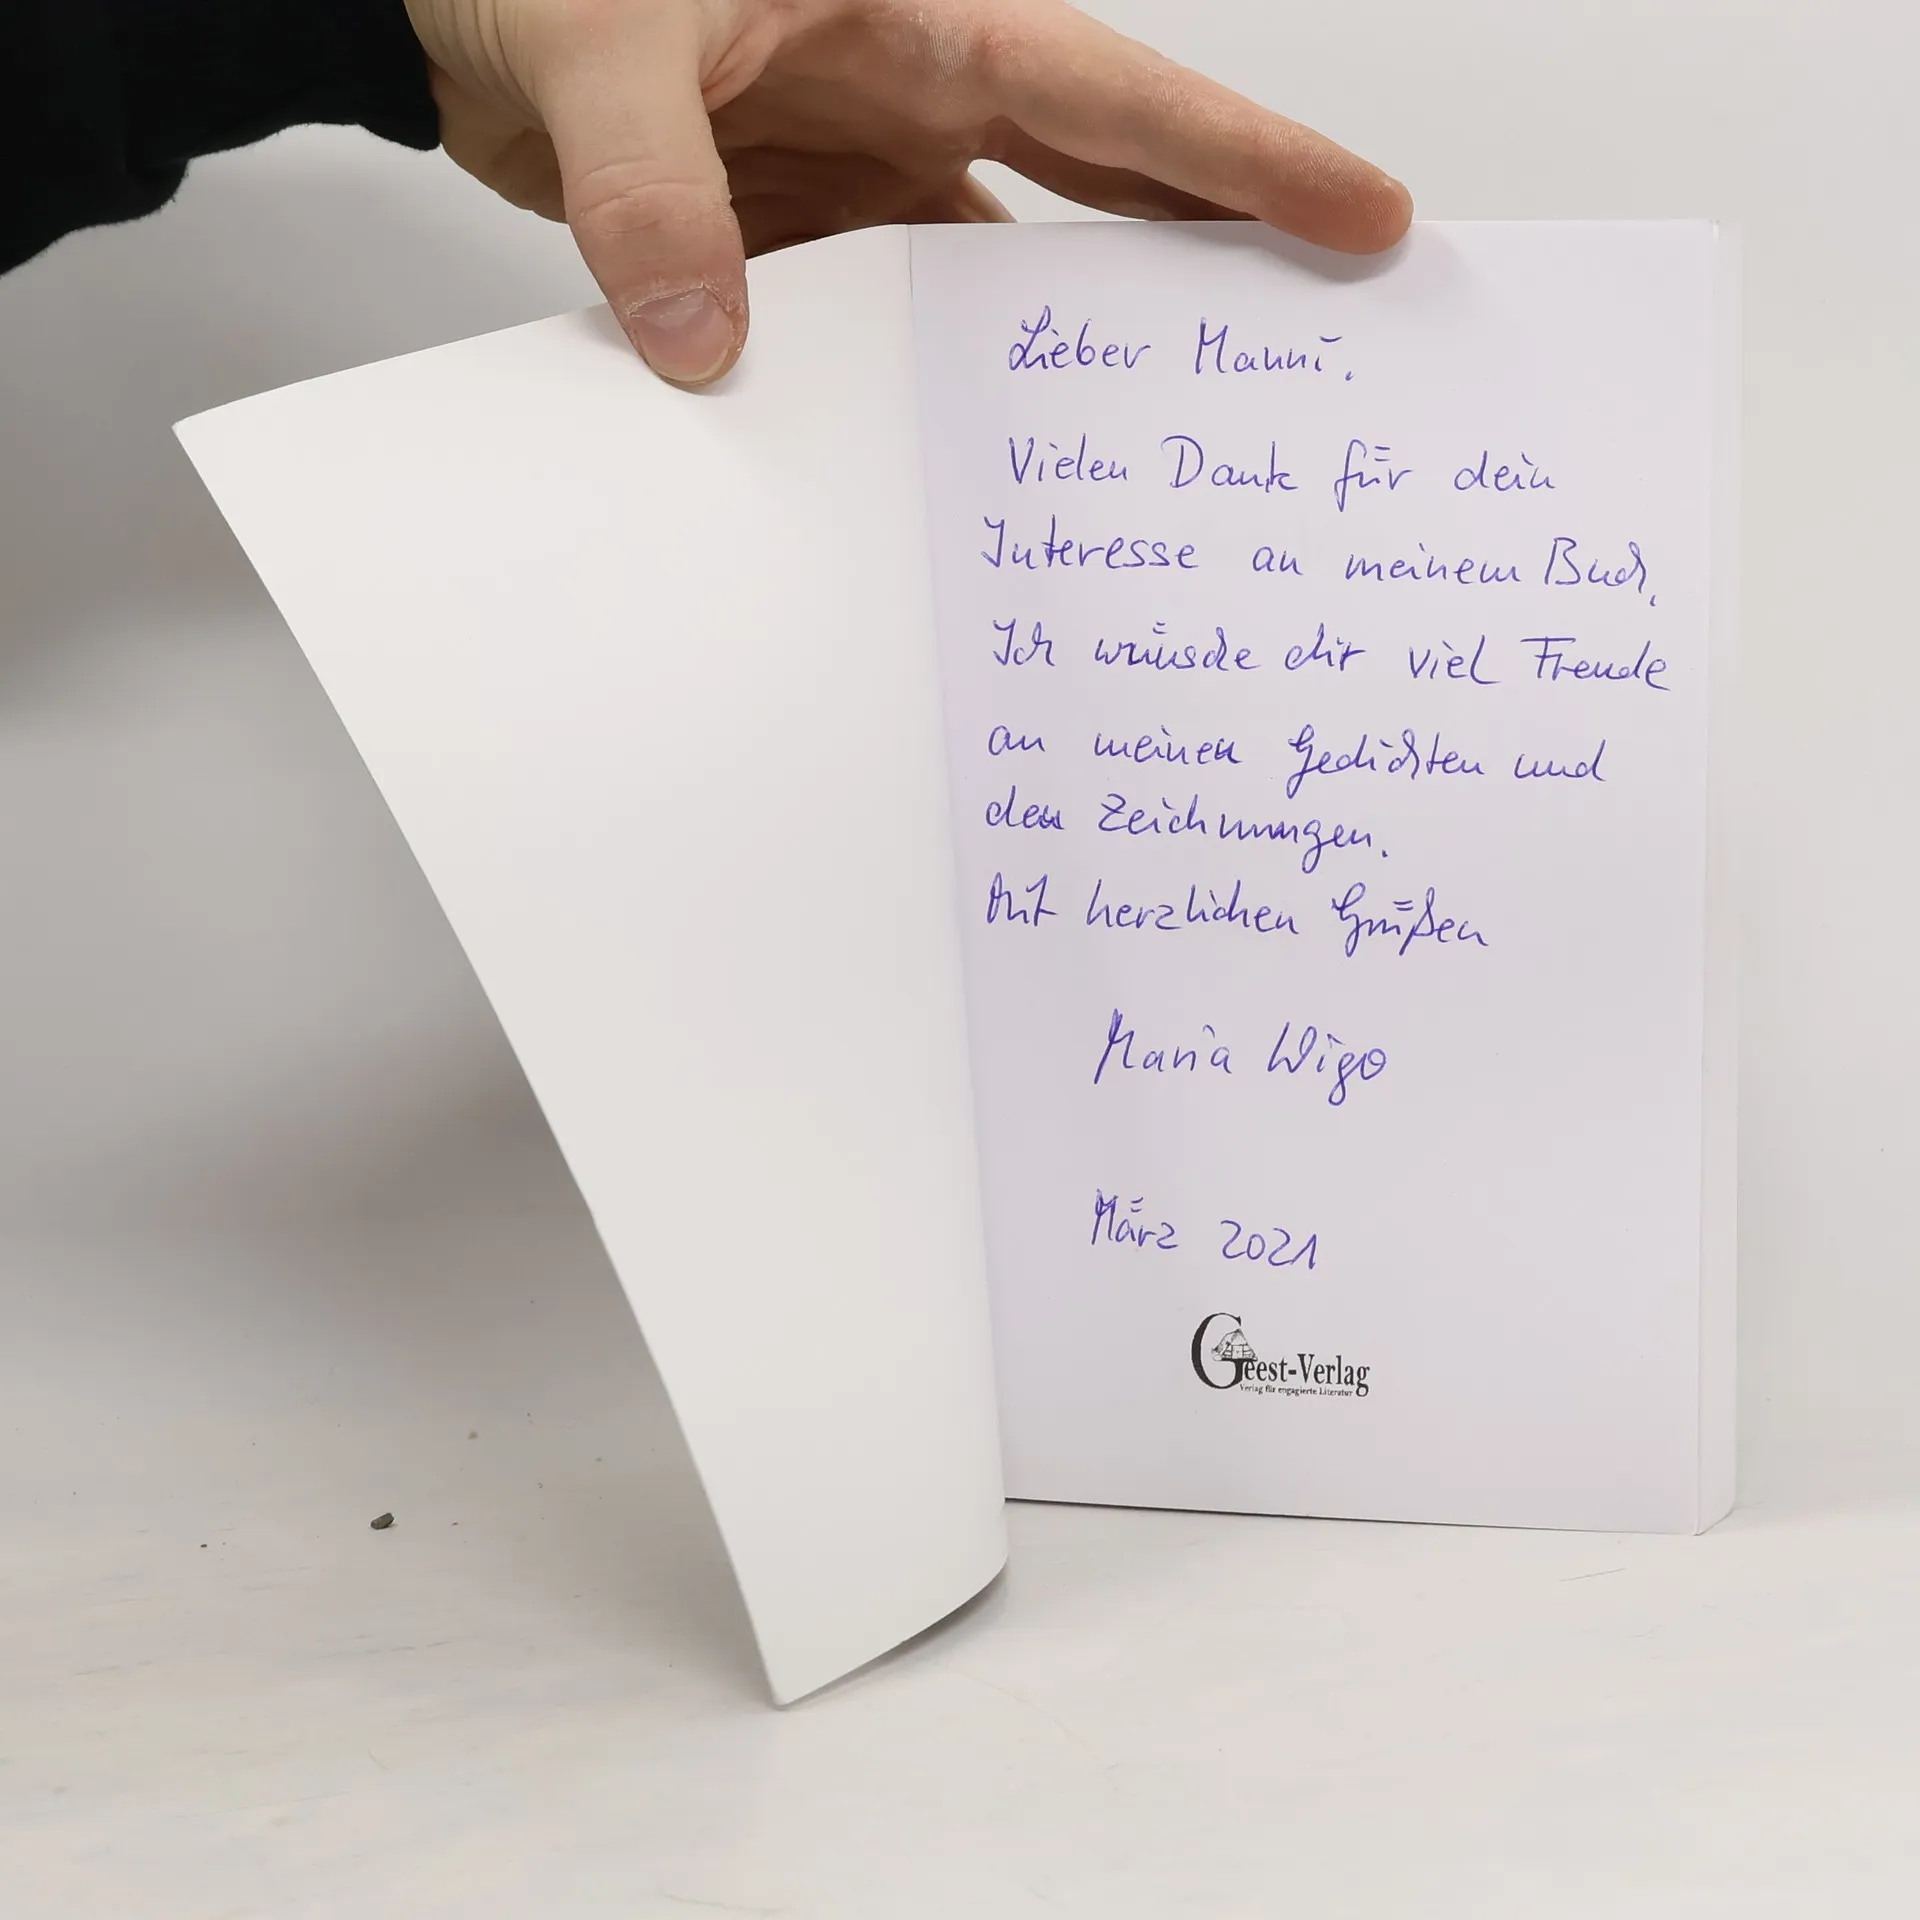 Lieber Manni,
Vielen Dank für dein
Interesse an meinem Buch,
Ich wünsche dir viel Freude
an meinen Gedichten und
den Zeichnungen.
Mit herzlichen Grüßen
Maria Wigo
März 2021
Geest-Verlag
Verlag für engagierte Literatur